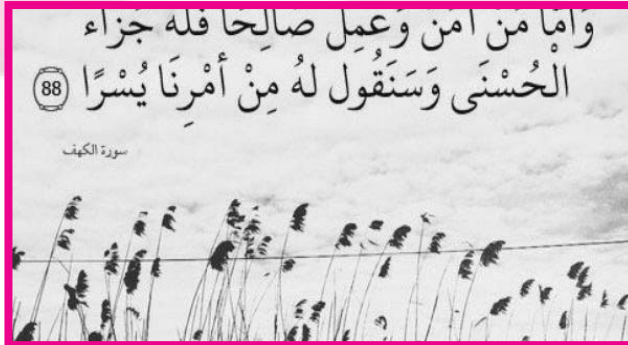 وَأَمَّا مَنْ آمَنَ وَعَمِلَ صَالِحًا فَلَهُ جَزَاء
الْحُسْنَى وَسَنَقُولُ لَهُ مِنْ أَمْرِنَا يُسْرًا 88
سورة الكهف